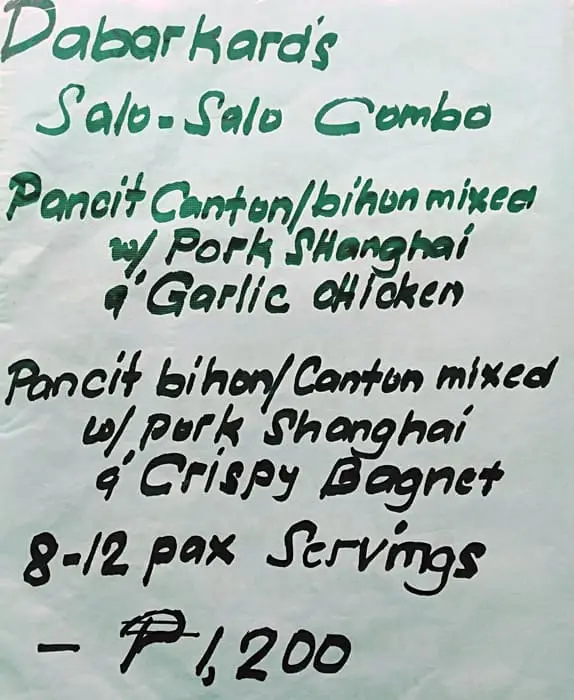 Dabarkard's
Salo-Salo Combo
Pancit Canton/bihon mixed
w/ Pork SHanghai
q' Garlic cHicken
Pancit bihon/Canton mixed
w/ pork Shanghai
q' Crispy Bagnet
8-12 pax Servings
- ₱1,200